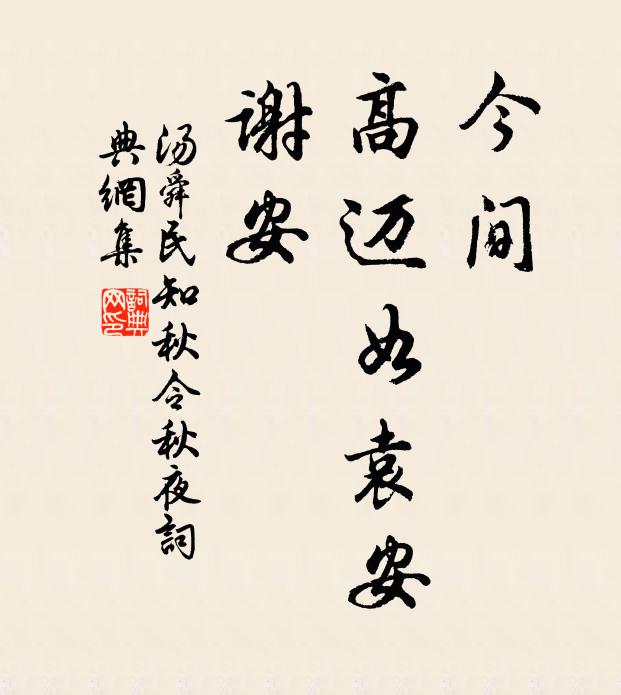 今间
高迈如袁安
谢安
汤舜民知秋令秋夜詞
典網集
詞典
网印